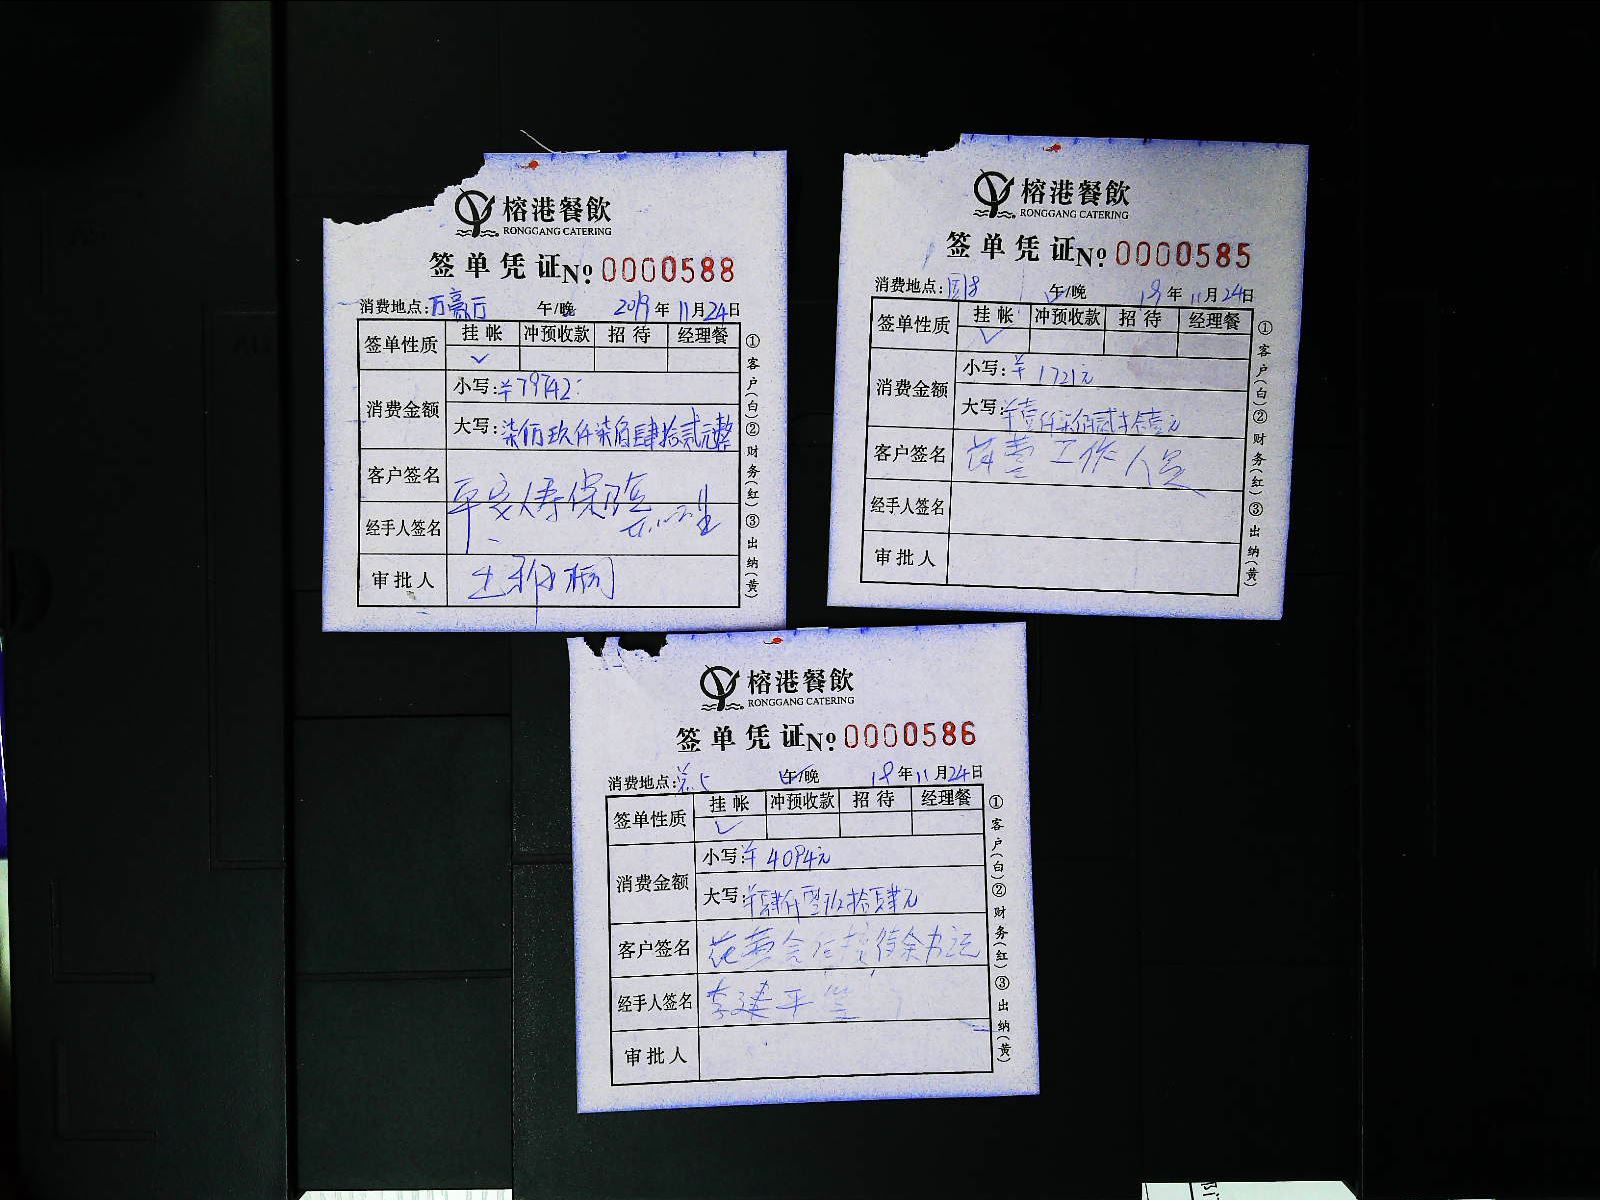 榕港餐飲
RONGGANG CATERING
签单凭证№ 0000588
消费地点:万豪厅 午/晚 2019年11月24日
签单性质 挂帐 冲预收款 招待 经理餐
✓
消费金额
小写:¥79742:
大写:柒万玖仟柒佰肆拾贰元整
客户签名
平安人寿保险
经手人签名
审批人
①客户(白)②财务(红)③出纳(黄)
榕港餐飲
RONGGANG CATERING
签单凭证№ 0000585
消费地点: 午/晚 19年11月24日
签单性质 挂帐 冲预收款 招待 经理餐
✓
消费金额
小写:¥1721元
大写:¥壹仟柒佰贰拾壹元
客户签名 工作人员
经手人签名
审批人
①客户(白)②财务(红)③出纳(黄)
榕港餐飲
RONGGANG CATERING
签单凭证№ 0000586
消费地点: 午/晚 19年11月24日
签单性质 挂帐 冲预收款 招待 经理餐
✓
消费金额
小写:¥4094元
大写:¥肆仟零玖拾肆元
客户签名
经手人签名 李建平
审批人
①客户(白)②财务(红)③出纳(黄)